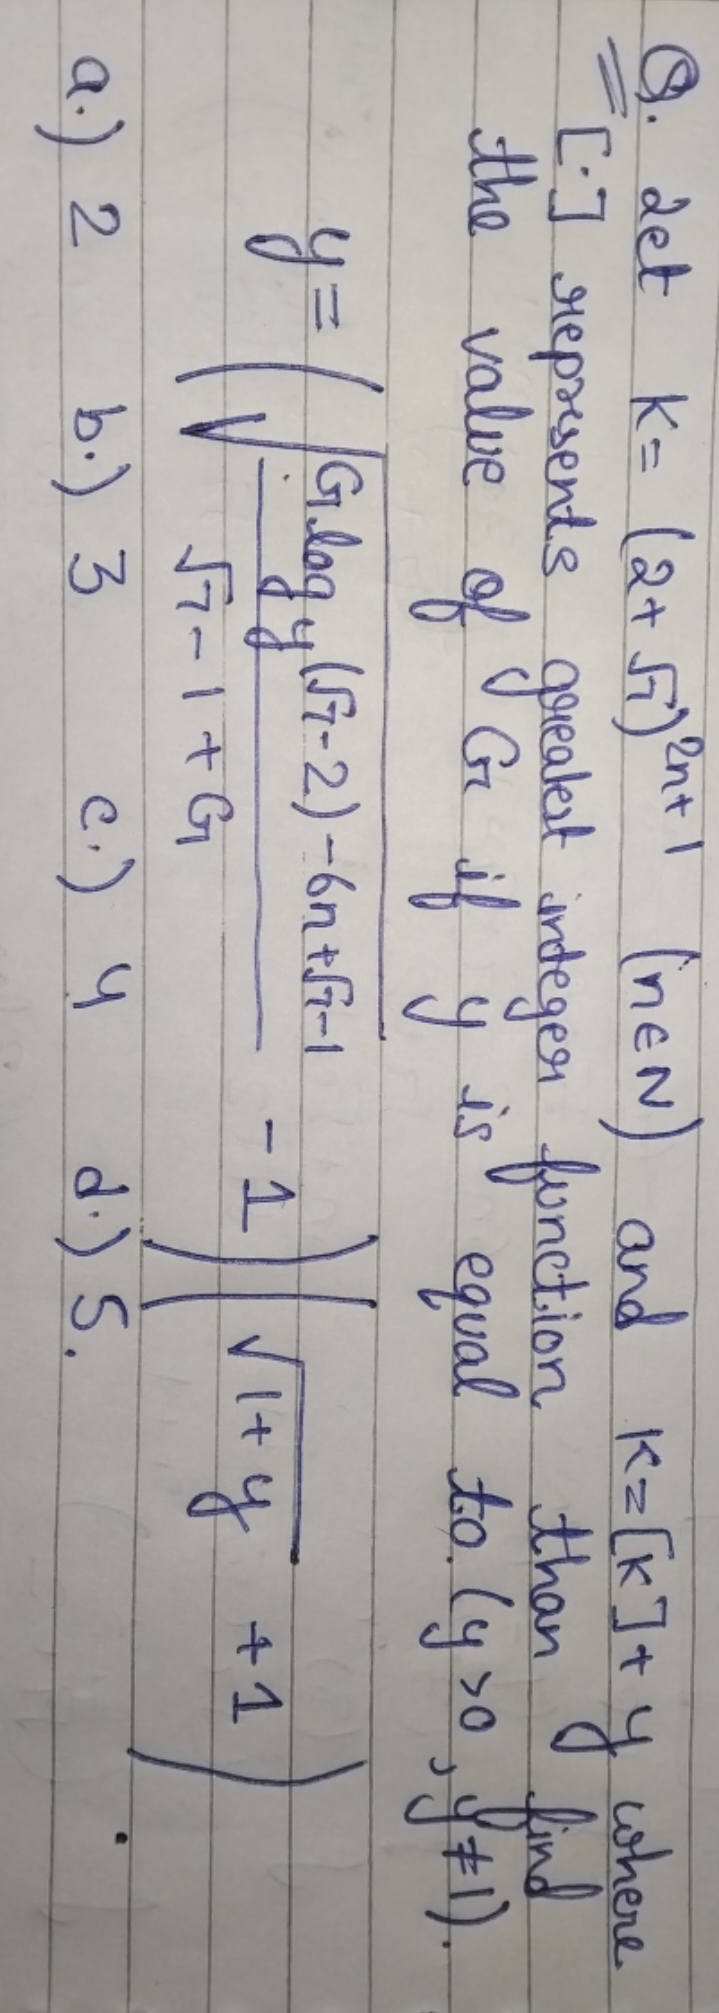 Q. Let K = (2+√7)^2n+1 (n∈N) and K=[K]+y where
[·] represents greatest integer function than find
the value of G if y is equal to. (y>0, y≠1).
y = (√((G log_y (√7-2) - 6n+√7-1)/(√7-1+G)) - 1)(√(1+y) + 1)
a.) 2 b.) 3 c.) 4 d.) 5.